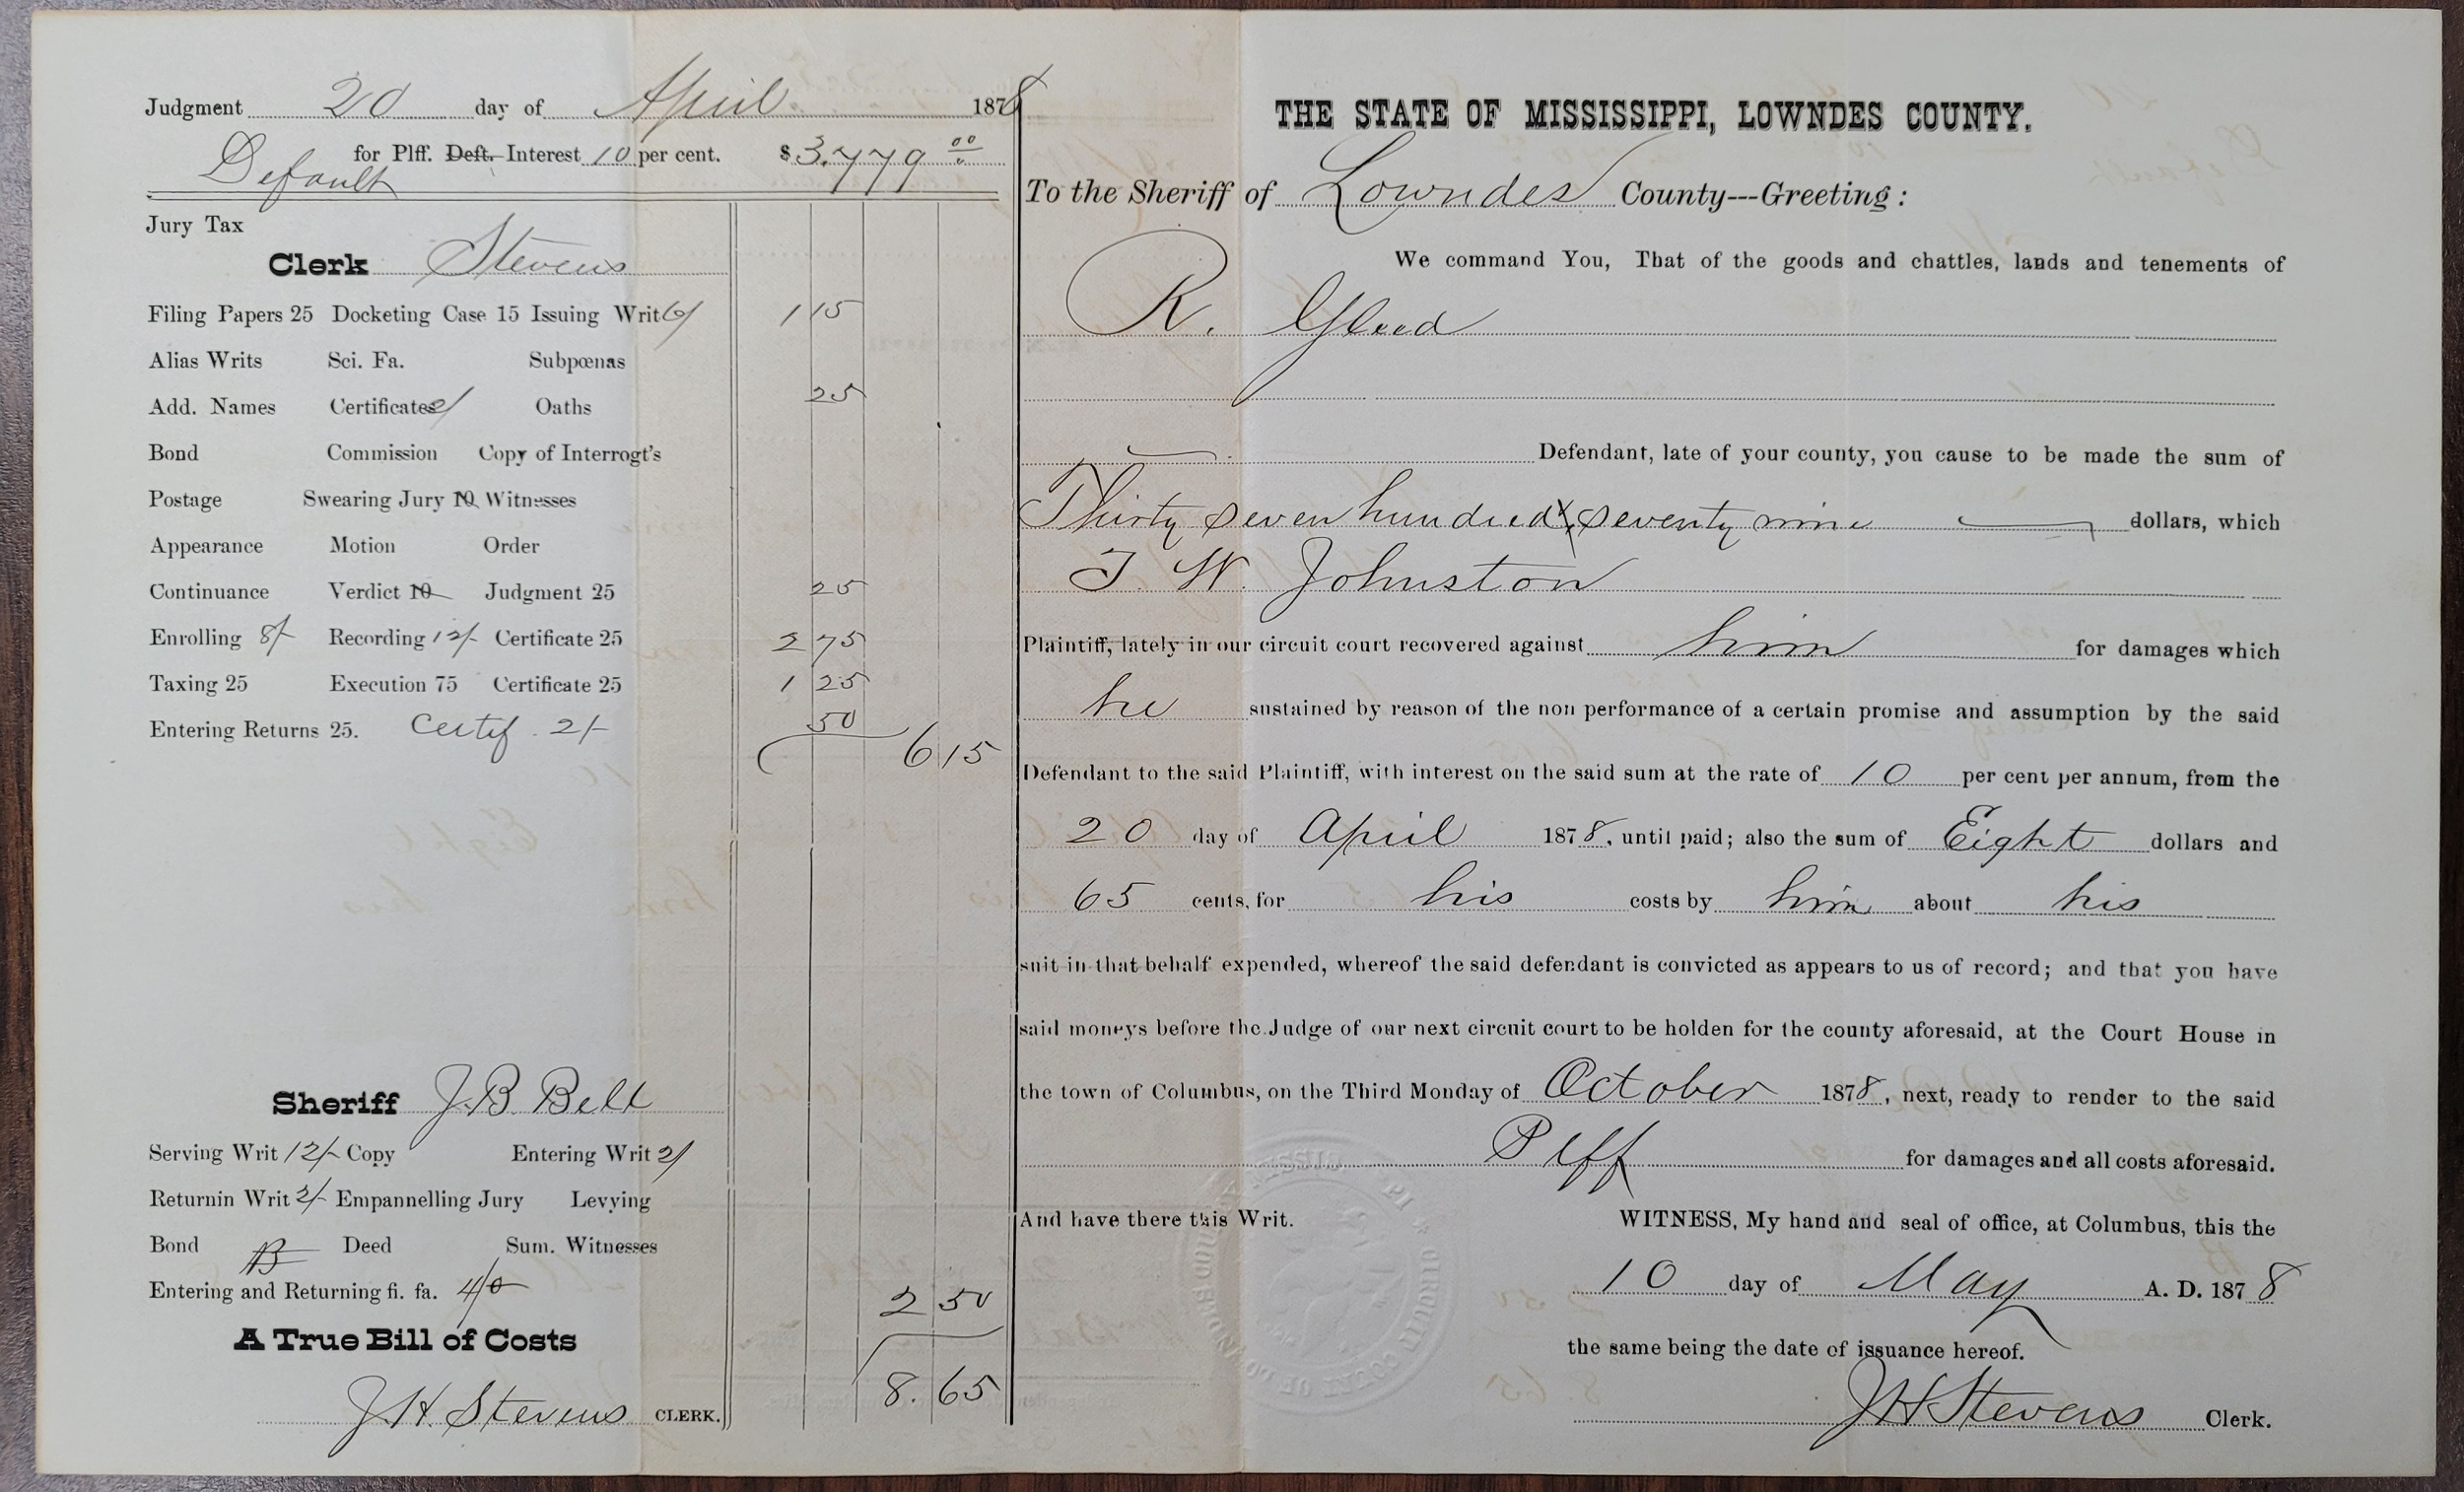 Judgment 20 day of April 1878
for Plff. Deft. Interest 10 per cent. $3.779 00
Default
Jury Tax
Clerk Stevens
Filing Papers 25 Docketing Case 15 Issuing Writ 6/ 1 15
Alias Writs Sci. Fa. Subpœnas
Add. Names Certificates 2/ Oaths 25
Bond Commission Copy of Interrogt's
Postage Swearing Jury 10 Witnesses
Appearance Motion Order
Continuance Verdict 10 Judgment 25 25
Enrolling 8/- Recording 12/- Certificate 25 2 75
Taxing 25 Execution 75 Certificate 25 1 25
Entering Returns 25. Certif. 2/- 50
6 15
Sheriff J. B. Bell
Serving Writ 12/- Copy Entering Writ 2/
Returnin Writ 2/- Empannelling Jury Levying
Bond B Deed Sum. Witnesses
Entering and Returning fi. fa. 4/0 2 50
A True Bill of Costs
8.65
J. H. Stevens CLERK.
THE STATE OF MISSISSIPPI, LOWNDES COUNTY.
To the Sheriff of Lowndes County---Greeting:
We command You, That of the goods and chattles, lands and tenements of
R. Gleed
Defendant, late of your county, you cause to be made the sum of
Thirty seven hundred & seventy nine dollars, which
T. W. Johnston
Plaintiff, lately in our circuit court recovered against him for damages which
he sustained by reason of the non performance of a certain promise and assumption by the said
Defendant to the said Plaintiff, with interest on the said sum at the rate of 10 per cent per annum, from the
20 day of April 1878, until paid; also the sum of Eight dollars and
65 cents, for his costs by him about his
suit in that behalf expended, whereof the said defendant is convicted as appears to us of record; and that you have
said moneys before the Judge of our next circuit court to be holden for the county aforesaid, at the Court House in
the town of Columbus, on the Third Monday of October 1878, next, ready to render to the said
Plff for damages and all costs aforesaid.
And have there this Writ. WITNESS, My hand and seal of office, at Columbus, this the
10 day of May A. D. 1878
the same being the date of issuance hereof.
J H Stevens Clerk.